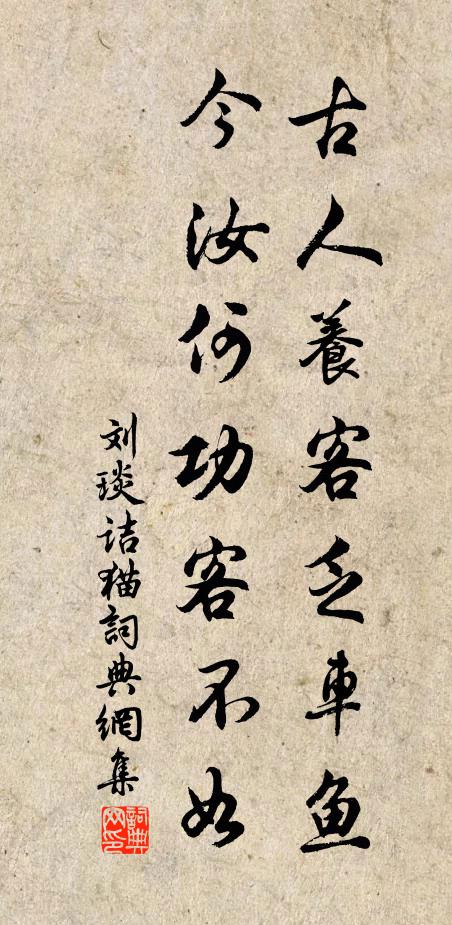 古人養客乏車魚
今汝何功客不如
刘琰诘猫詞典網集
詞典
网印